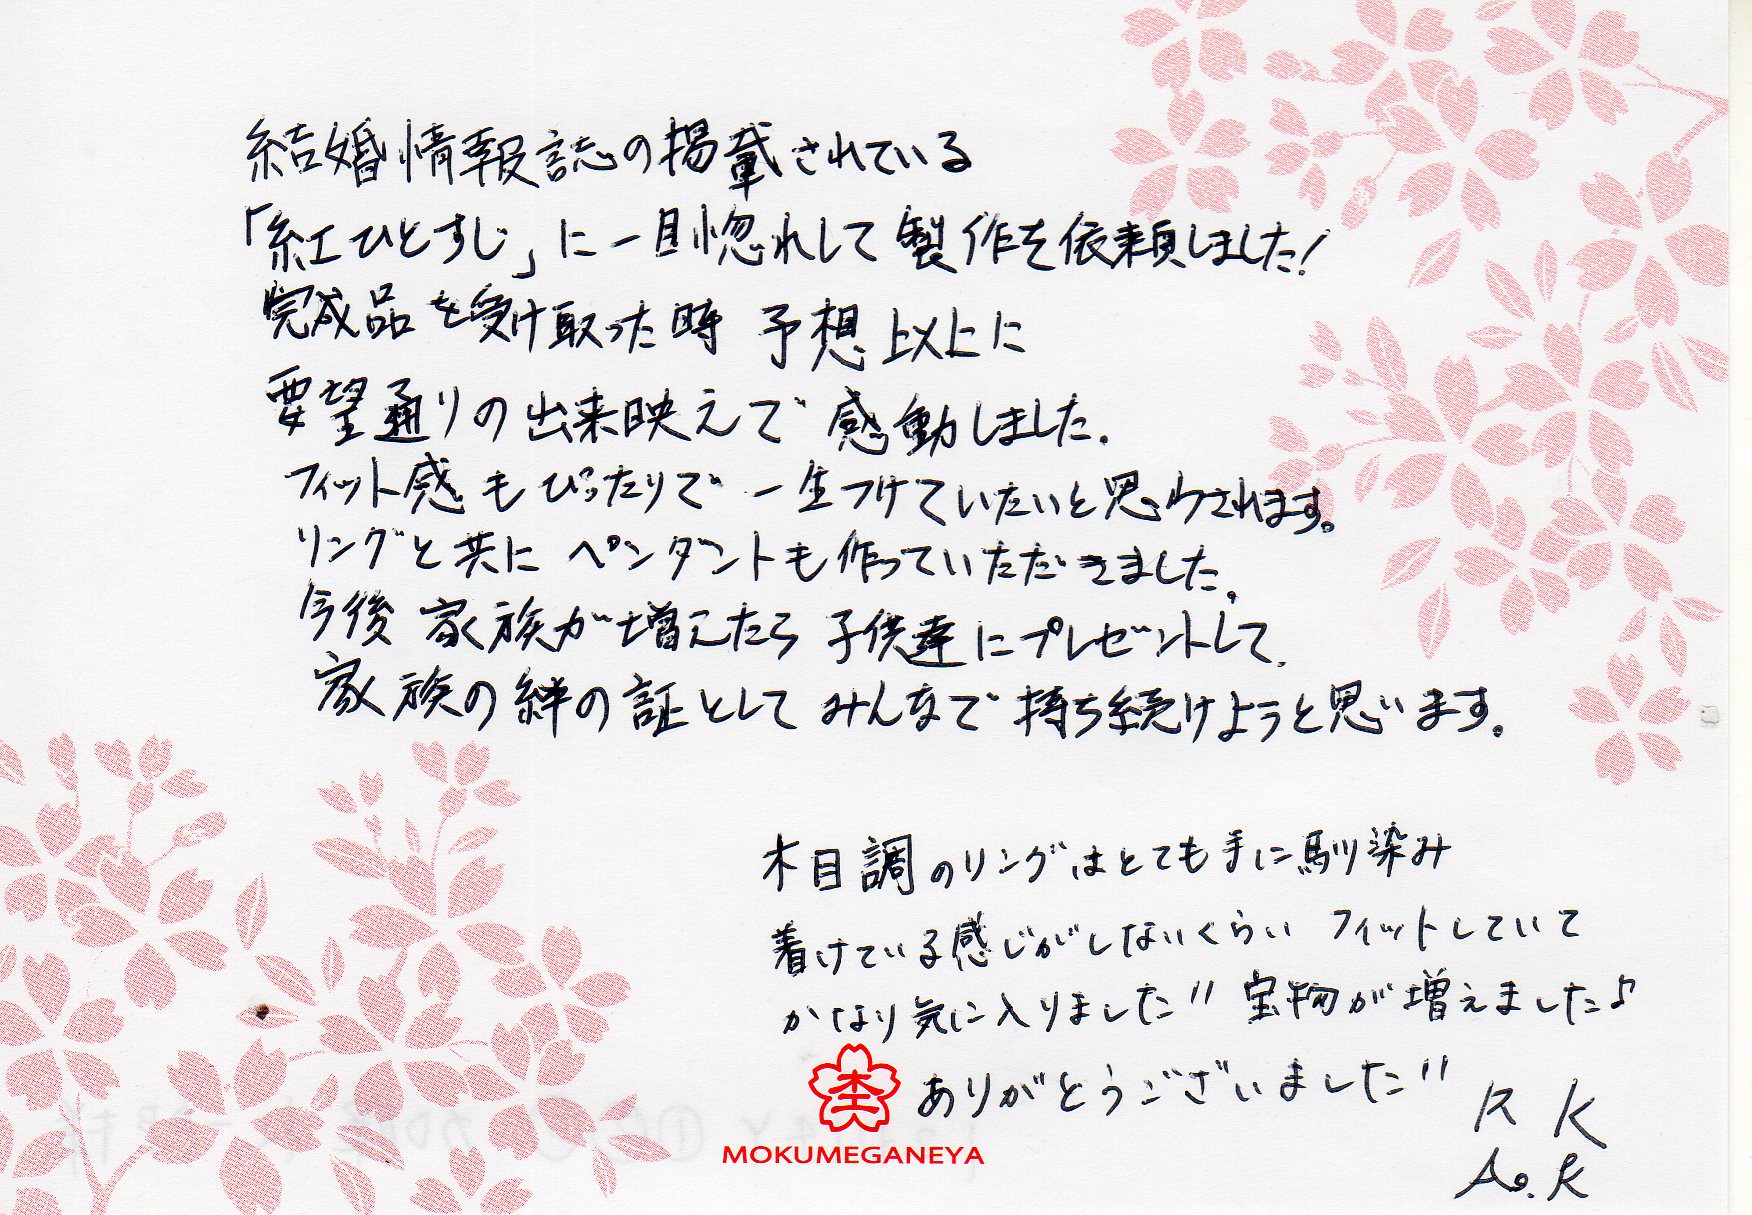 結婚情報誌の掲載されている
「紅ひとすじ」に一目惚れして製作を依頼しました!
完成品を受け取った時 予想以上に
要望通りの出来映えで 感動しました.
フィット感もぴったりで 一生つけていたいと思わされます。
リングと共に ペンダントも作っていただきました.
今後 家族が増えたら 子供達にプレゼントして.
家族の絆の証として みんなで 持ち続けようと思います.
木目調のリングはとても手に馴染み
着けている感じがしないくらい フィットしていて
かなり気に入りました!! 宝物が増えました♪
ありがとうございました!!
R K
A.K
MOKUMEGANEYA